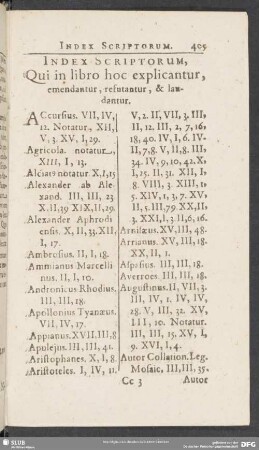 INDEX SCRIPTORUM. 405
INDEX SCRIPTORUM,
Qui in libro hoc explicantur,
emendantur, refutantur, & lau-
dantur.
ACcursius. VII, IV,
12. Notatur. XII,
V, 3. XV, I, 29.
Agricola. notatur.
XIII, I, 13.
Alciatꝰ notatur X, I, 15
Alexander ab Ale-
xand. III, III, 23
X.II, 39 XIX, II, 29.
Alexander Aphrodi
ensis. X, II, 33. XII,
I, 17.
Ambrosius. II, I, 18.
Ammianus Marcelli
nus. II, I, 10.
Andronicus Rhodius.
III, III, 18.
Apollonius Tyanæus.
VII, IV, 17.
Appianus. XVII. III, 8
Apulejus. III, III, 41.
Aristophanes. X, I, 8.
Aristoteles. I, IV, 11.
V, 2. II, VII, 3. III,
II, 12. III, 2, 7, 16,
18, 40. IV, I, 6. IV,
II, 7, 8. V, II, 8. III,
34. IV, 9, 10, 42. X,
I, 25. II, 31. XII, I,
8. VIII, 3. XIII, I,
5. XIV, I, 3, 7. XV,
II, 5. III, 79. XX, II,
3. XXI, I, 3. II, 6, 16.
Arnisæus. XV, III, 48.
Arrianus. XV, III, 18.
XX, II, 1.
Aspasius. III, III, 18.
Averroes. III, III, 18.
Augustinus. II, VII, 3.
III, IV, 1. IV, IV,
28. V, III, 32. XV,
III, 10. Notatur.
III, III, 15. XV, I,
9. XVI, I, 4.
Autor Collation. Leg.
Mosaic, III, III, 35.
Cc 3 Autor
SLUB
DFG